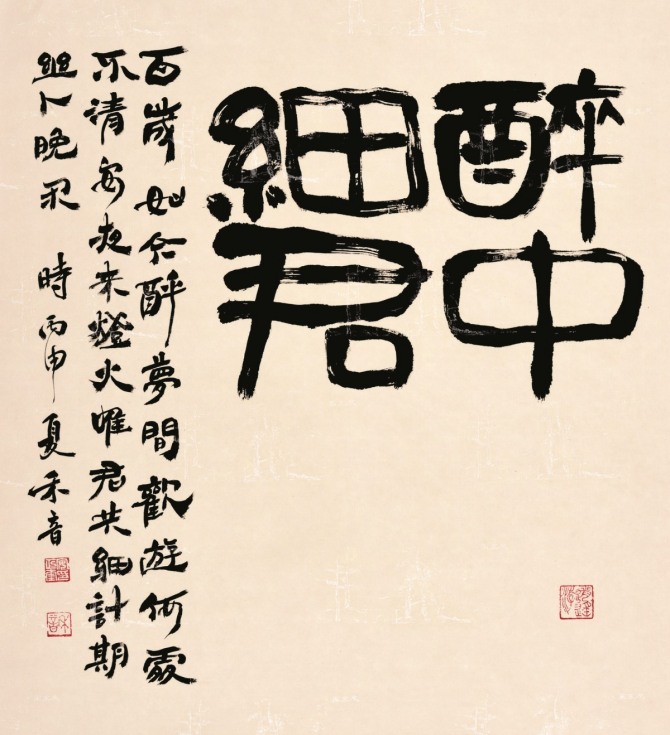 醉中
細君
百歲如今醉夢間歡游何處
不清安夜来燈火唯君共細計期
晚 時丙申夏禾音